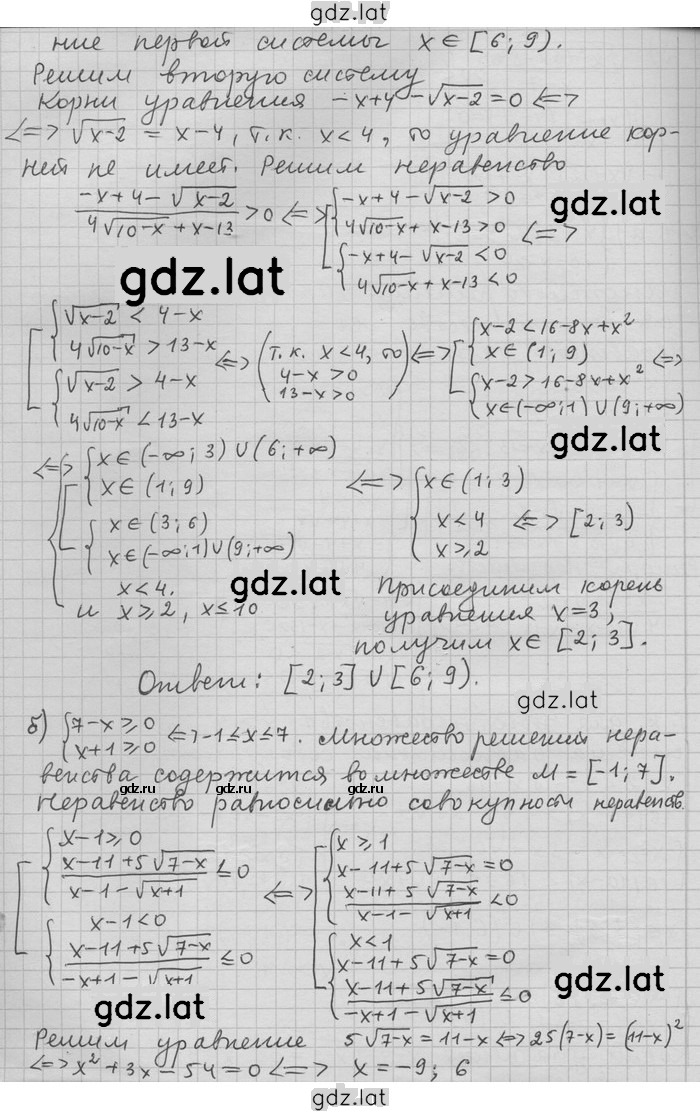 gdz.lat
ние первой системы x ∈ [6; 9).
Решим вторую систему
Корни уравнения -x+4-√(x-2) = 0 <=>
<=> √(x-2) = x-4, т.к. x<4, то уравнение кор-
ней не имеет. Решим неравенство
(-x+4-√(x-2))/(4√(10-x)+x-13) > 0 <=> [ { -x+4-√(x-2) > 0
4√(10-x)+x-13 > 0
{ -x+4-√(x-2) < 0
4√(10-x)+x-13 < 0 <=>
gdz.lat
gdz.lat
[ { √(x-2) < 4-x
4√(10-x) > 13-x
{ √(x-2) > 4-x
4√(10-x) < 13-x
<=> ( т.к. x<4, то
4-x>0
13-x>0 ) <=> [ { x-2<16-8x+x²
x∈(1; 9)
{ x-2>16-8x+x²
x∈(-∞;1)∪(9;+∞) <=>
gdz.lat
<=> { [ { x∈(-∞; 3)∪(6;+∞)
x∈(1; 9)
{ x∈(3; 6)
x∈(-∞;1)∪(9;+∞)
x<4.
и x≥2, x≤10
<=> { x∈(1; 3)
x<4
x≥2 <=> [2; 3)
gdz.lat
Присоединим корень
уравнения x=3,
получим x∈ [2; 3].
Ответ: [2; 3] ∪ [6; 9).
gdz.lat
б) { 7-x≥0
x+1≥0 <=> -1≤x≤7. Множество решений нера-
венства содержится во множестве M = [-1; 7].
gdz.ru gdz.ru gdz.ru
Неравенство равносильно совокупности неравенств.
[ { x-1≥0
(x-11+5√(7-x))/(x-1-√(x+1)) ≤0
{ x-1<0
(x-11+5√(7-x))/(-x+1-√(x+1)) ≤0
<=> [ { x≥1
x-11+5√(7-x)=0
(x-11+5√(7-x))/(x-1-√(x+1)) <0
{ x<1
x-11+5√(7-x)=0
(x-11+5√(7-x))/(-x+1-√(x+1)) ≤0
gdz.lat
gdz.lat
Решим уравнение 5√(7-x)=11-x <=> 25(7-x)=(11-x)²
<=> x²+3x-54=0 <=> x=-9; 6
gdz.lat